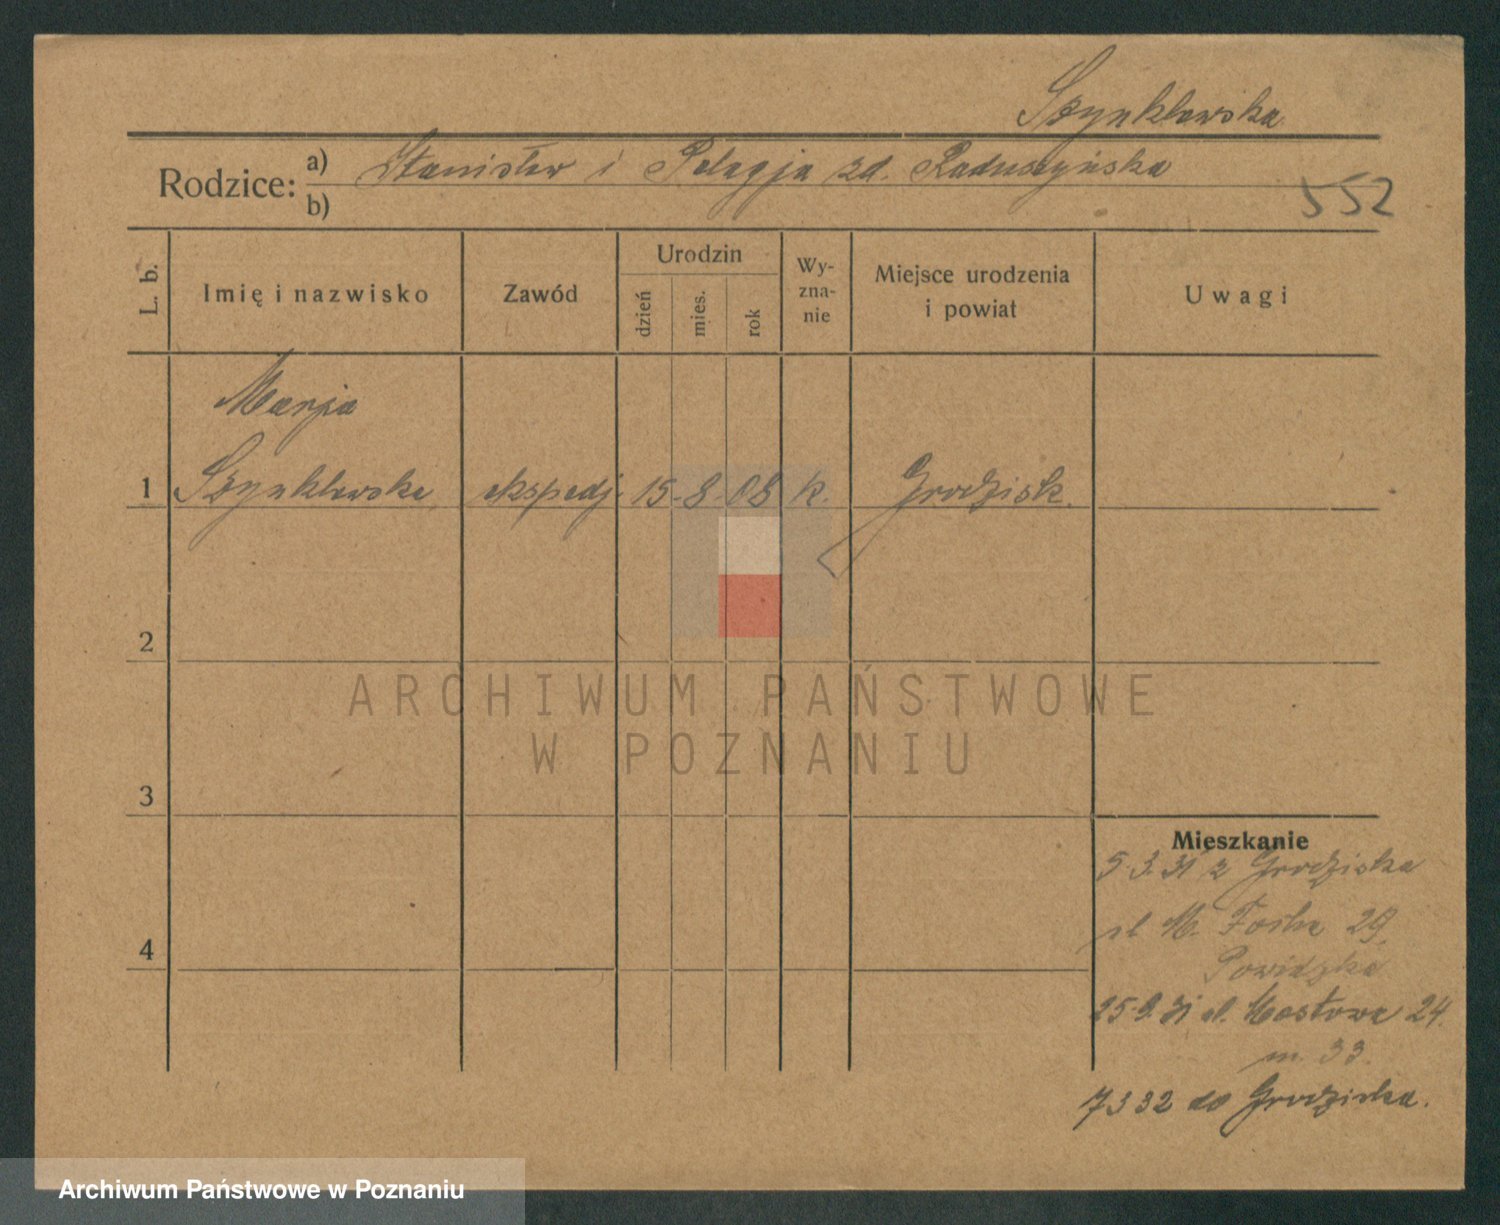 Szynklewska
Rodzice: a) Stanisław i Pelagja zd. Raduszyńska
b)
552
L. b.
Imię i nazwisko
Zawód
Urodzin
dzień
mies.
rok
Wy-
zna-
nie
Miejsce urodzenia
i powiat
Uwagi
Marja
1 Szynklewska ekspedj. 15-8-08 k. Grodzisk.
2
3
4
Mieszkanie
5.3.31 z Grodziska
ul M. Focha 29.
Powidzka
25.9.31 ul. Mostowa 24.
m. 33.
7 3 32 do Grodziska.
ARCHIWUM PAŃSTWOWE
W POZNANIU
Archiwum Państwowe w Poznaniu